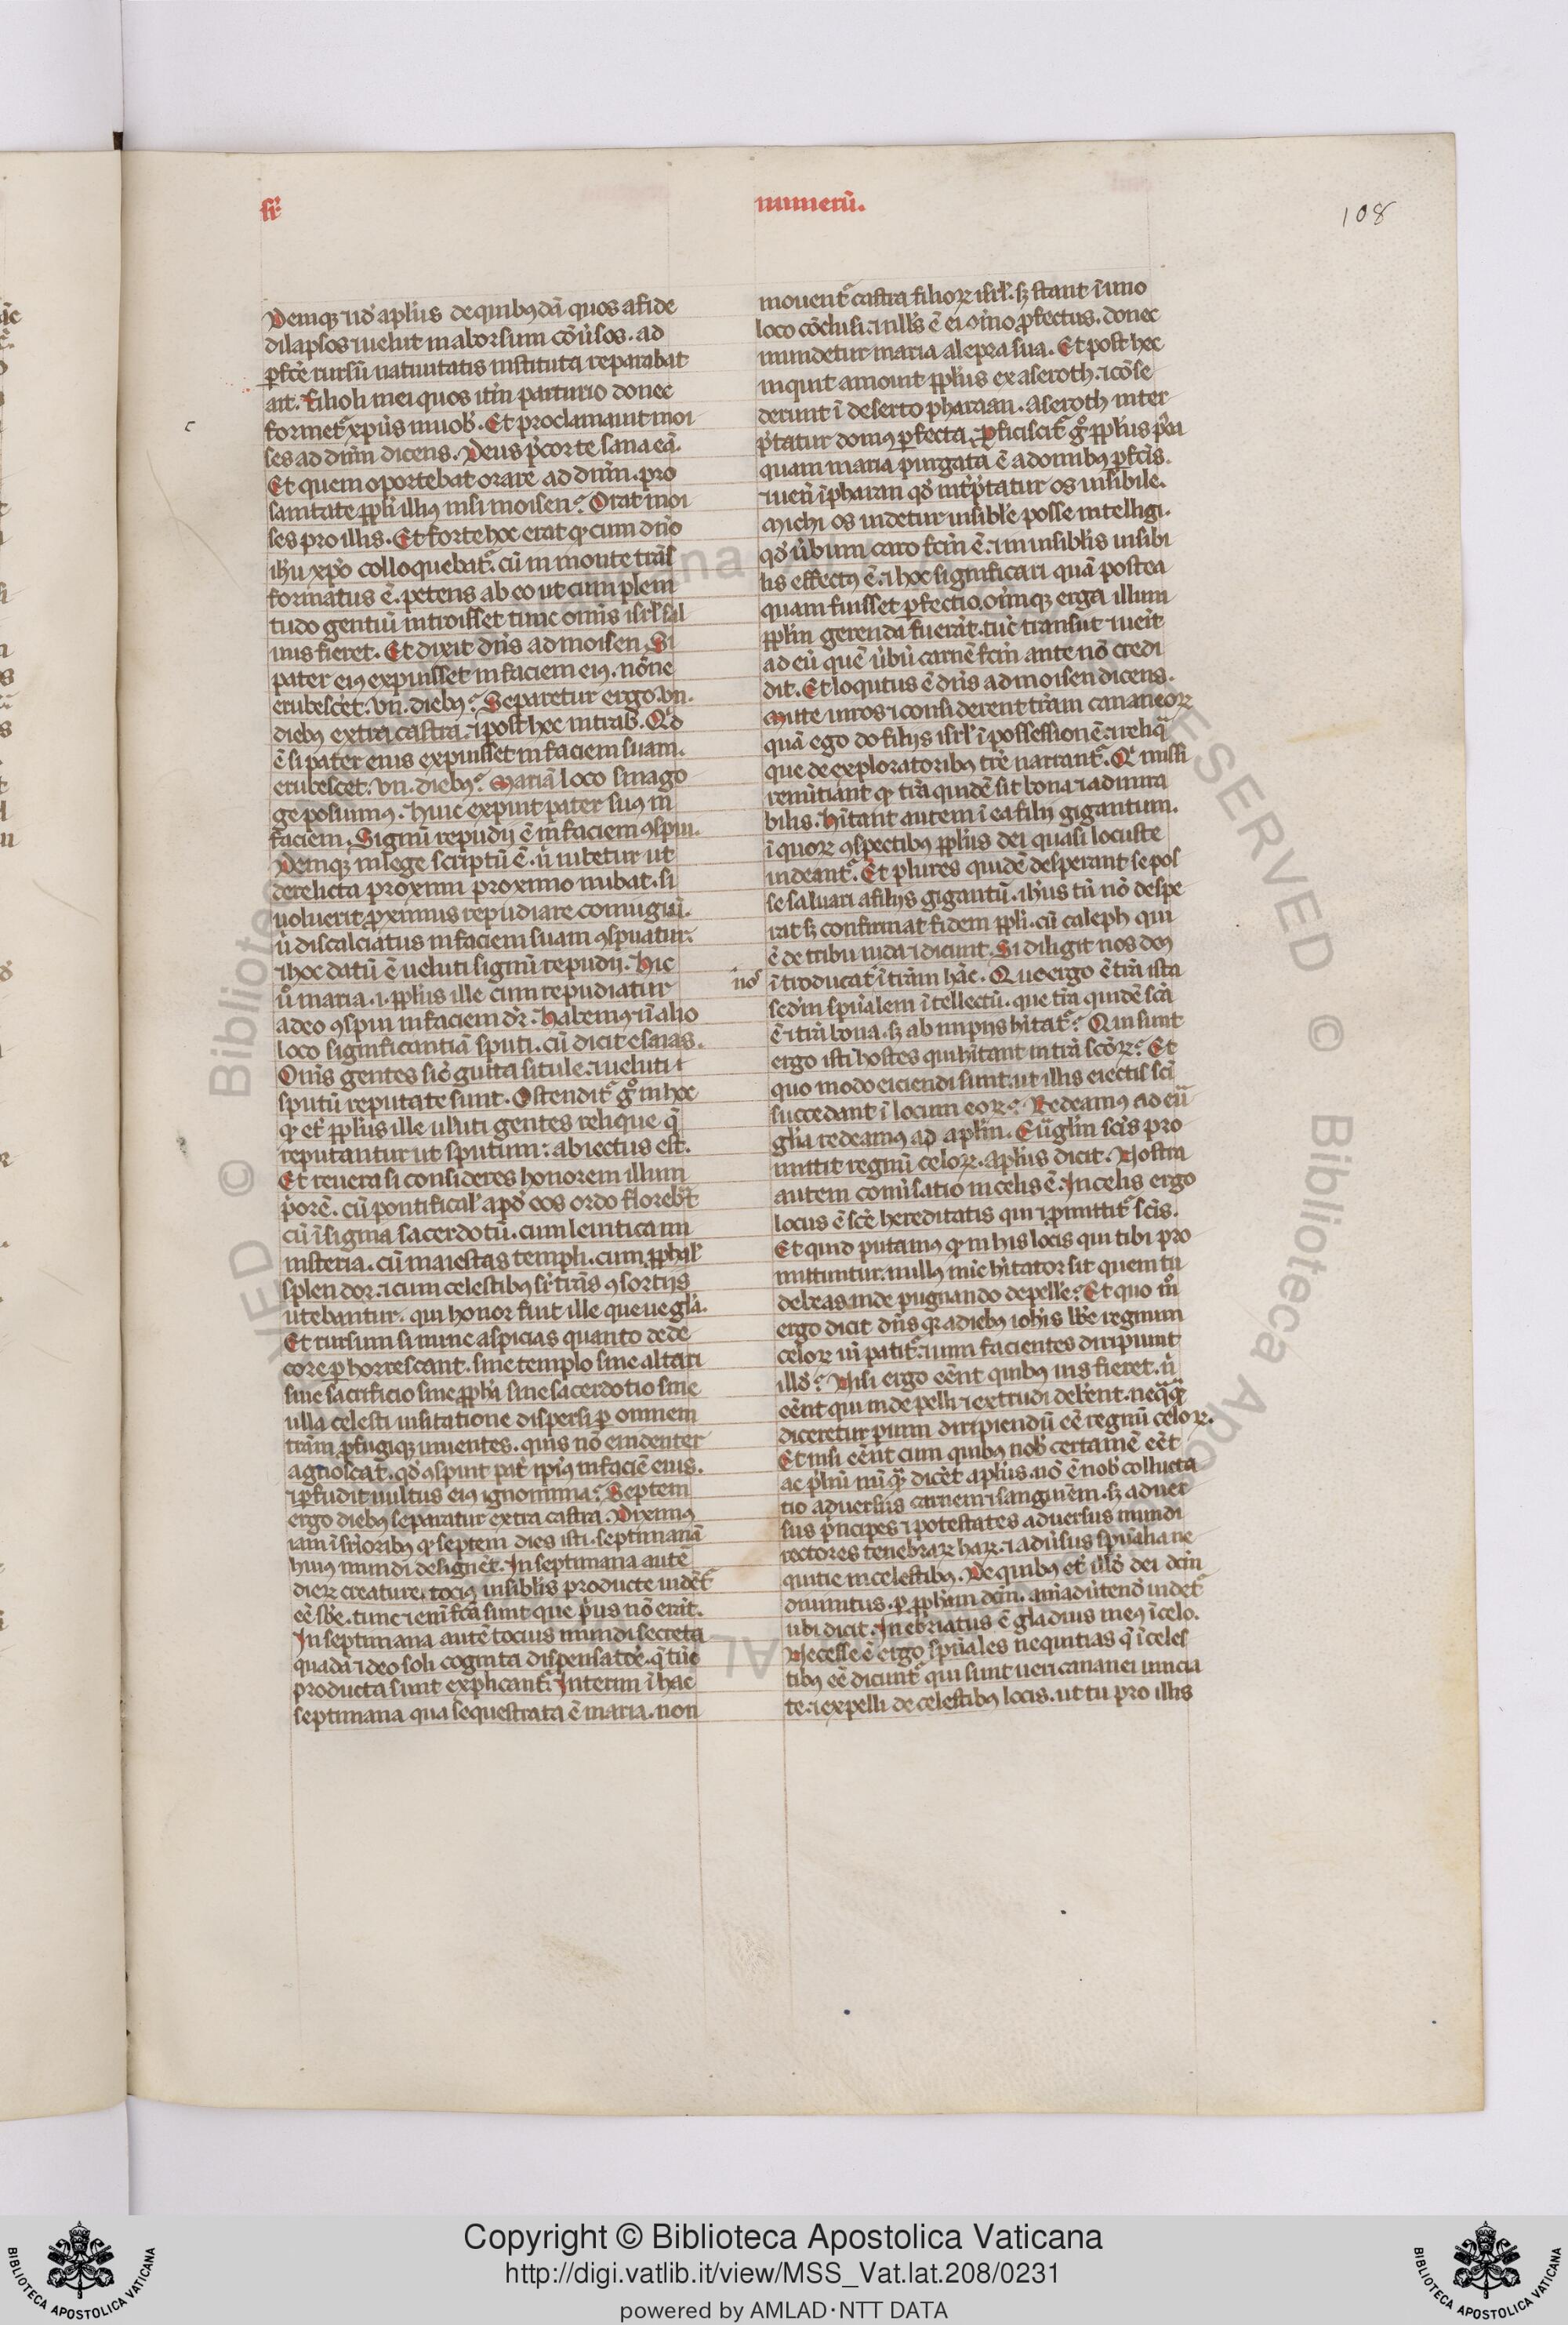 sr̄
numerū.
108
Deniqꝫ ⁊ id̓ apl̓us de quibꝰdā quos a fide
dilapsos ⁊ uelut in aborsum cōu̓sos. ad
ꝑfcē rursū natiuitatis instituta reparabat
ait. filioli mei quos itm̄ parturio donec
formet᷑ xp̄us in uob̓. Et proclamauit moi
ses ad dn̄m dicens. Deus p̓cor te sana eā.
Et quem oportebat orare ad dn̄m. pro
sanitate ppl̓i illiꝰ nisi moisen? Orat moi
ses pro illis. Et forte hoc erat ꝙ cum dn̄o
ih̄u xp̄o colloquebat᷑. cū in monte trāſ
formatus ē. petens ab eo ut cum pleni
tudo gentiū introisset tunc om̄is isrl̓ sal
uus fieret. Et dixit dn̄s ad moisen. Si
pater eiꝰ expuisset in faciem eiꝰ. nōne
erubescet. vii. diebꝰ? Separetur ergo. vii.
diebꝰ extra castra. ⁊ post hoc intrab̓. Qd̓
ē si pater eius expuisset in faciem suam.
erubescet. vii. diebꝰ? Mariā loco sinago
ge posuimꝰ. huic expuit pater suꝰ in
faciem. Signū repudij ē in faciem ꝯspui.
Deniqꝫ in lege scriptū ē. u̓ iubetur ut
derelicta proximi proximo nubat. si
uoluerit ꝓximus repudiare coniugiū.
u̓ discalciatus in faciem suam ꝯspuatur.
⁊ hoc datū ē ueluti signū repudij. Hic
uͦ maria. i. ppl̓us ille cum repudiatur
adeo ꝯspui in faciem dr̄. Habemꝰ ⁊ ī alio
loco significantiā sputi. cū dicit esaias.
Om̄s gentes sic̄ gutta situle. ⁊ ueluti
sputū reputate sunt. Ostendit᷑ gͦ in hoc
ꝙ et̓ ppl̓us ille ul̓uti gentes relique. q̄
reputantur ut sputum: abiectus est.
Et reuera si consideres honorem illum
p̓orē. cū pontifical̓ apd̓ eos ordo floreb̓t
cū īsignia sacerdotū. cum leuitica mi
nisteria. cū maiestas templi. cum ꝓphal̓
splendor. ⁊ cum celestibꝰ sr̄ tr̄nis ꝯsortijs
utebantur. qui honor fuit ille que ue gl̓a.
Et rursum si nunc aspicias quanto dede
core ꝑhorrescant. sine templo sine altari
sine sacrificio sine ꝓph̓a sine sacerdotio sine
ulla celesti uisitatione dispersi ꝑ omnem
terram ꝓfugiqꝫ uiuentes. quis nō euidenter
agnoscat. qd̓ ꝯspuit pat̓ ipiꝰ in faciē eius.
⁊ ꝑfudit uultus eiꝰ ignominia? Septem
ergo diebꝰ separatur extra castra. Diximꝰ
iam ī suꝑioribꝰ ꝙ septem dies isti. septimanā
huiꝰ mundi designēt. In septimana autē
dieꝝ creature. tociꝰ uisibilis producte uidēt᷑
eē sb̓e. tunc ⁊ enī fc̄a sunt que p̓us nō erāt.
In septimana autē tocius mundi secreta
quadā ⁊ deo soli cognita dispensatōe. q̄ tūc
producta sunt explicant᷑. Interim ī hac
septimana qua sequestrata ē maria. non
mouent᷑ castra filioꝝ isrl̓. sꝫ stant ī uno
loco cōclusi. ⁊ null̓s ē ei oīno ꝓfectus. donec
mundetur maria a lepra sua. Et post hec
inquit amouit ppl̓us ex aseroth. ⁊ cōse
derunt ī deserto pharaan. Aseroth inter
p̓tatur domꝰ ꝑfecta. Proficiscit᷑ gͦ ppl̓us post
quam maria purgata ē a domibꝰ ꝑfcīs.
⁊ uenit ī pharan qd̓ int̓p̓tatur os uisibile.
Michi os uidetur uisibile posse intelligi.
qd̓ u̓bum caro fcm̄ ē. ⁊ inuisibil̓is uisibi
lis effectꝰ ē. ⁊ hoc significari quā postea
quam fuisset ꝑfectio om̄iqꝫ erga illum
ppl̓m gerenda fuerāt. tūc transit ⁊ uenit
ad eū quē u̓bū carnē fcm̄ ante nō credi
dit. Et loqutus ē dn̄s ad moisen dicens.
Mitte uiros ⁊ considerent terram cananeoꝝ
quā ego do filijs isrl̓ ī possessionē. ⁊ reliq̄
que de exploratoribꝰ tr̄e narrant᷑. Qi missi
renūtiant ꝙ tr̄a quidē sit bona ⁊ admira
bilis. Hītant autem ī ea filij gigantum.
ī quoꝝ ꝯspectibꝰ ppl̓us dei quasi locuste
uideant᷑. Et plures quidē desperant se pos
se saluari a filijs gigantū. ih̄us tn̄ nō despe
rat sꝫ confirmat fidem ppl̓i. cū caleph qui
ē de tribu iuda ⁊ dicunt. Si diligit nos deꝰ
īntroducat᷑ ī tr̄am hāc. Que ergo ē tr̄a ista
scd̓m spūalem ītellectū. que tr̄a quidē scā
ē ⁊ tr̄a bona. sꝫ ab impijs hītat᷑? Qui sunt
ergo isti hostes qui hītant in tr̄a scōꝝ? Et
quo modo eiciendi sunt. ut illis eiectis scī
succedant ī locum eoꝝ? Redeamꝰ ad eū
gl̓ia redeamꝰ ad apl̓m. Euglīm scīs pro
mittit regnū celoꝝ. apl̓us dicit. Nostra
autem conu̓satio in celis ē. In celis ergo
locus ē scē hereditatis qui ⁊ ꝓmittit᷑ scīs.
Et quid putamꝰ ꝙ in his locis qui tibi pro
mittuntur. nullꝰ nūc hītator sit quem tu
debeas inde pugnando depellere? Et quo mͦ
ergo dicit dn̄s qr̄ a diebꝰ ioh̓is bb̓e regnum
celoꝝ uī patit᷑. ⁊ uim facientes diripiunt
illd̓? Nisi ergo eēnt quibꝰ uis fieret. ni
eēnt qui inde pelli ⁊ extrudi deb̓ent. neq̄q̄
diceretur ꝑ uim diripiendū eē regnū celoꝝ.
Et nisi eēnt cum quibꝰ nob̓ certamē eēt
ac p̓liū nūq̄ dicēt apl̓us. nō ē nob̓ collucta
tio aduersus carnem ⁊ sanguinem. sꝫ aduer
sus p̓ncipes ⁊ potestates aduersus mundi
rectores tenebraꝝ haꝝ. ⁊ adu̓sus spūalia ne
quitie in celestibꝰ. De quibꝰ et̓ illd̓ dei dcm̄
diuinitus. ꝑ ꝓph̓am dcm̄. aīaduertendū uidet᷑
ubi dicit. Inebriatus ē gladius meꝰ ī celo.
Necesse ē ergo spūales nequitias q̄ ī celes
tibꝰ eē dicunt᷑ qui sunt ueri cananei uincia
te. ⁊ expelli de celestibꝰ locis. ut tu pro illis
Copyright © Biblioteca Apostolica Vaticana
http://digi.vatlib.it/view/MSS_Vat.lat.208/0231
powered by AMLAD·NTT DATA
BIBLIOTECA APOSTOLICA VATICANA
BIBLIOTECA APOSTOLICA VATICANA